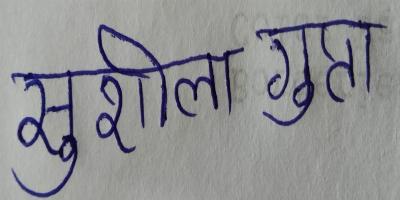 सुशीला गुप्ता